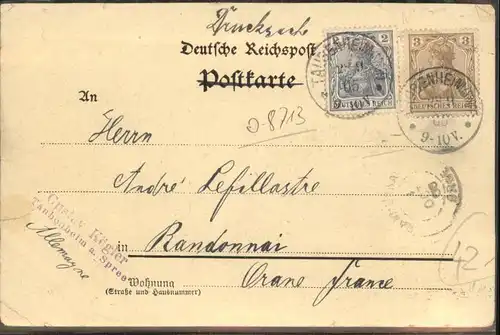 Drucksache
Deutsche Reichspost
Postkarte
2
DEUTSCHES REICH
3
DEUTSCHES REICH
TAUBENHEIM
9-10V.
TAUBENHEIM
9-10V.
An
0-8713
Herrn
André Lefillastre
in Randonnai
Wohnung
(Straße und Hausnummer)
Orne France
Gustav Kögler
Taubenheim a. Spree
Allemagne
12-